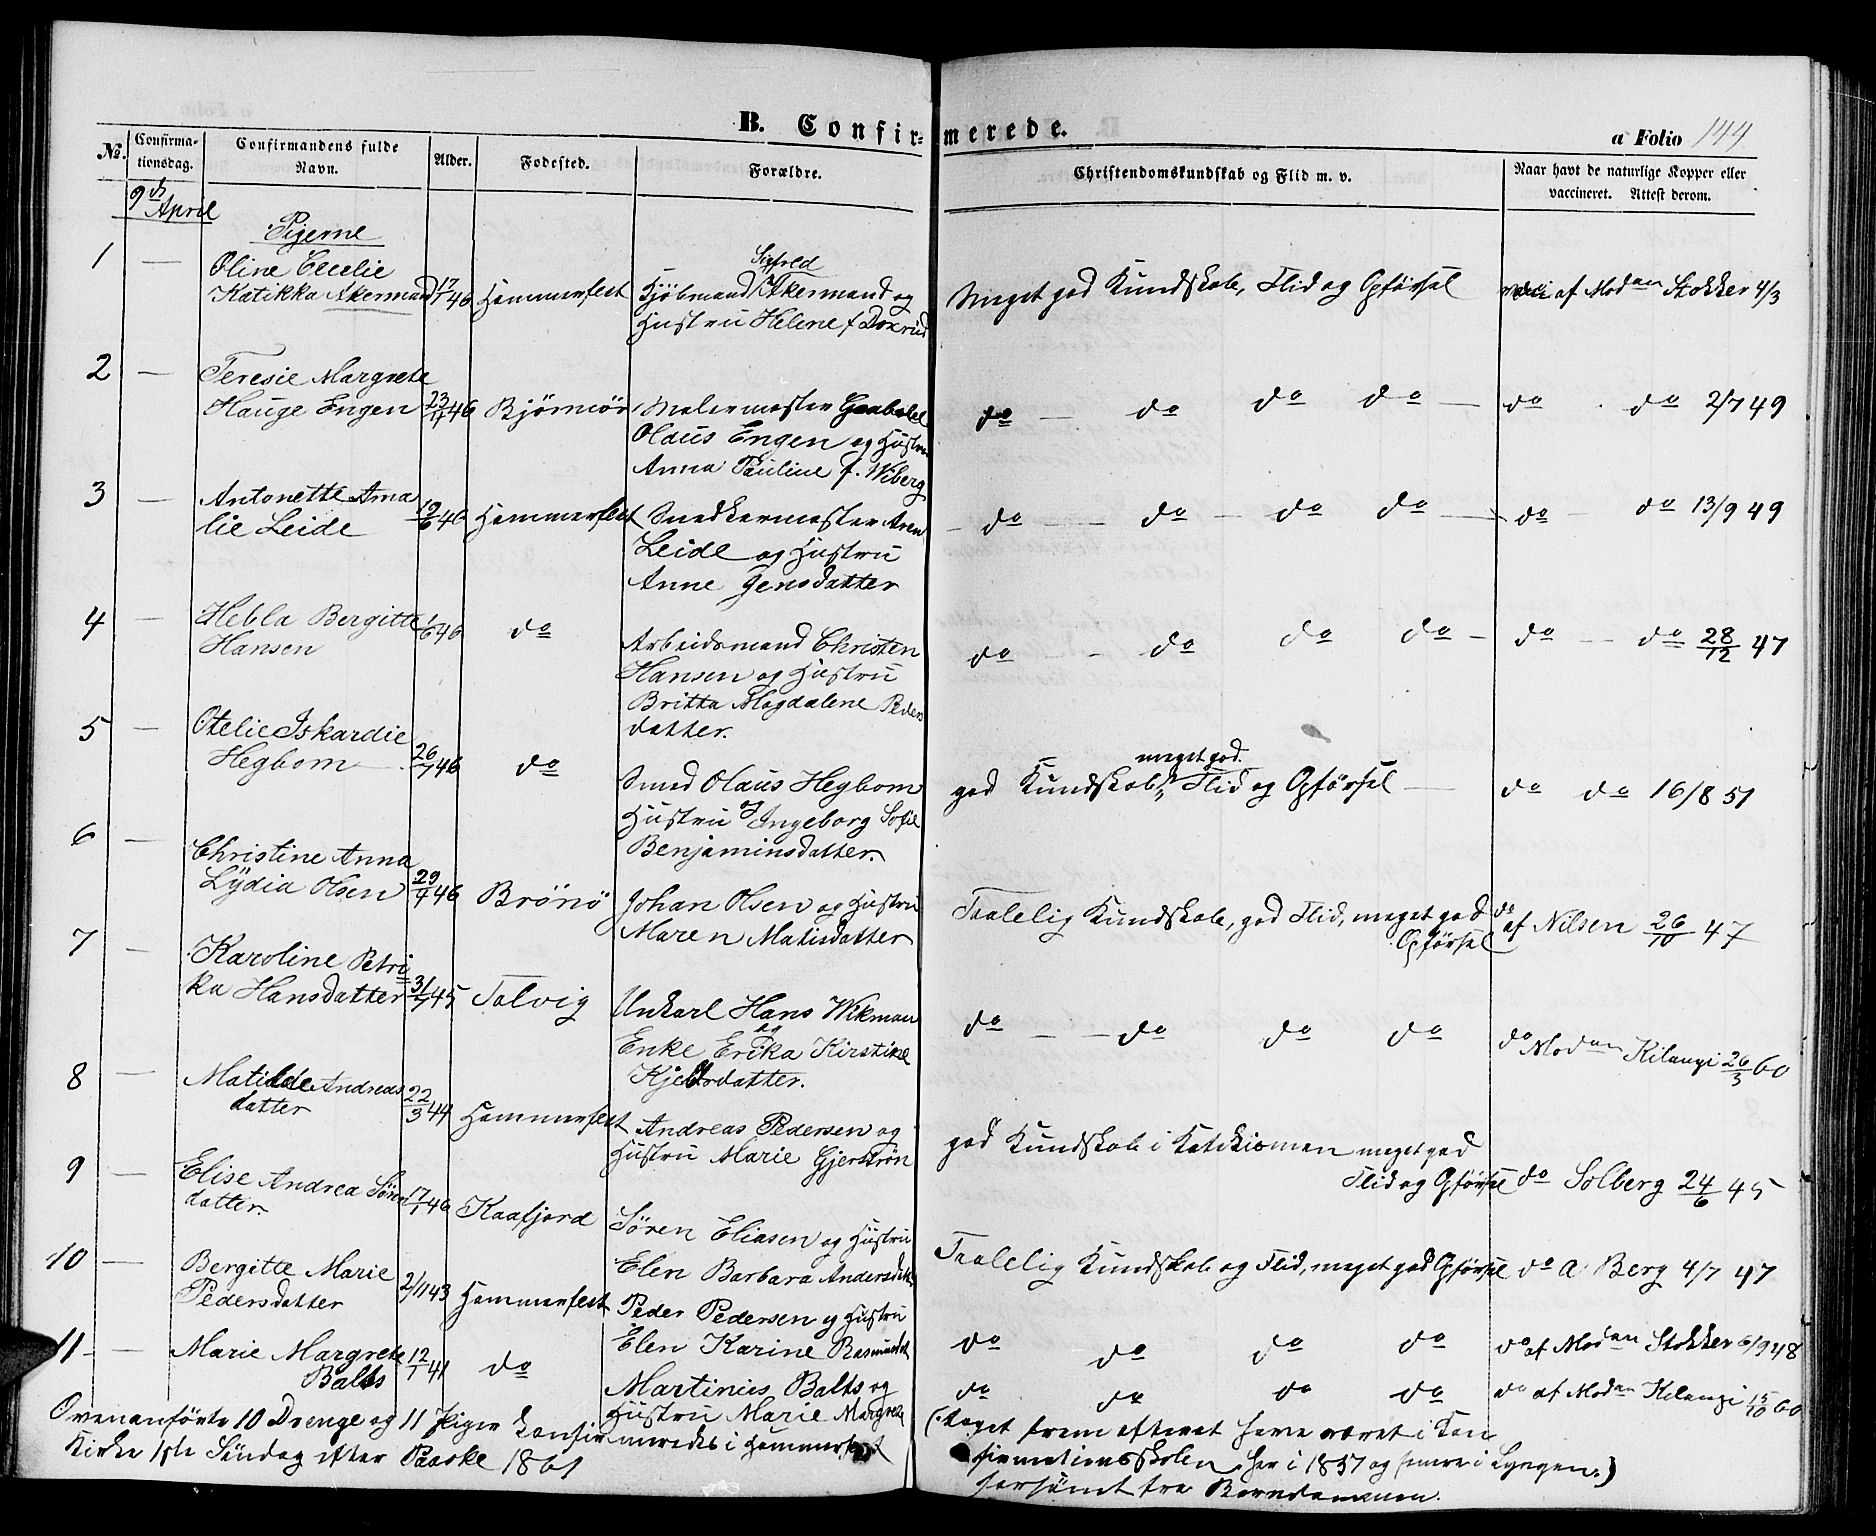 B. Confirmerede.
a Folio 144
No.
Confirmationsdag.
Confirmandens fulde Navn.
Alder.
Fodested.
Forældre.
Christendomskundskab og Flid m. v.
Naar havt de naturlige Kopper eller vaccineret. Attest derom.
9de April
Pigerne
1 — Oline Cecilie
Katikka Akermand 17/1 46 Hammerfest
Kjøbmand Sigfred Akermand og
Hustru Helene f
Meget god Kundskab, Flid og Opførsel
af Madam Stokker 4/3
2 — Teresie Margrete
Hauge Engen 23/11 46 Bjørnør
Malermester
Olaus Engen og Hustru
Anna Pauline f. Wiberg
do — do do do — do do 2/7 49
3 — Antonette Ama
lie Leide 19/6 46 Hammerfest
Snedkermester Aren
Leide og Hustru
Anne Jensdatter
do — do — do do — do — do 13/9 49
4 — Hebla Bergitte
Hansen 1/6 46 do
Arbeidsmand Christen
Hansen og Hustru
Britta Magdalene Peders
datter.
do — do do do — do — do 28/12 47
5 — Otelie Iskardie
Hegbom 26/7 46 do
Smed Olaus Hegbom
og Hustru Ingeborg Sofie
Benjaminsdatter.
god Kundskab, meget god Flid og Opførsel — do do 16/8 51
6 — Christine Anna
Lÿdia Olsen 29/4 46 Brönö
Johan Olsen og Hustru
Maren Matisdatter
Taalelig Kundskab, god Flid, meget god
Opførsel
do af Nilsen 26/10 47
7 — Karoline Petri
ka Hansdatter 31/7 45 Talvig
Unkarl Hans Wikman
og Enke Erika Kirstine
Kjeldsdatter.
do — do do do do Madam Kilangi 26/3 60
8 — Matilde Andreas
datter 22/3 44 Hammerfest
Andreas Pedersen og
Hustru Marie Gjerström
god Kundskab i Katekismen meget god
Flid og Opførsel do Solberg 24/6 45
9 — Elise Andrea Sören
datter. 17/1 46 Kaafjord
Sören Eliasen og Hustru
Elen Barbara Andersdatt
Taalelig Kundskab og Flid, meget god Opførsel do A Berg 4/7 47
10 — Bergitte Marie
Pedersdatter 2/11 43 Hammerfest
Peder Pedersen og Hustru
Elen Karine Rasmusdat
do do do do do af Madam Stokker 6/9 48
11 — Marie Margrete
Balts 12/1 41 do
Martinius Balts og
Hustru Marie Margrete
do do do do do af Madam Kilangi 15/10 60
Ovenanførte 10 Drenge og 11 Piger konfirmeredes i Hammerfest
Kirke 1ste Söndag efter Paaske 1861
(taget frem efterat have været i Kon
firmationsskolen her i 1857 og senere i Lyngen.)
forsömt fra Barndommen.